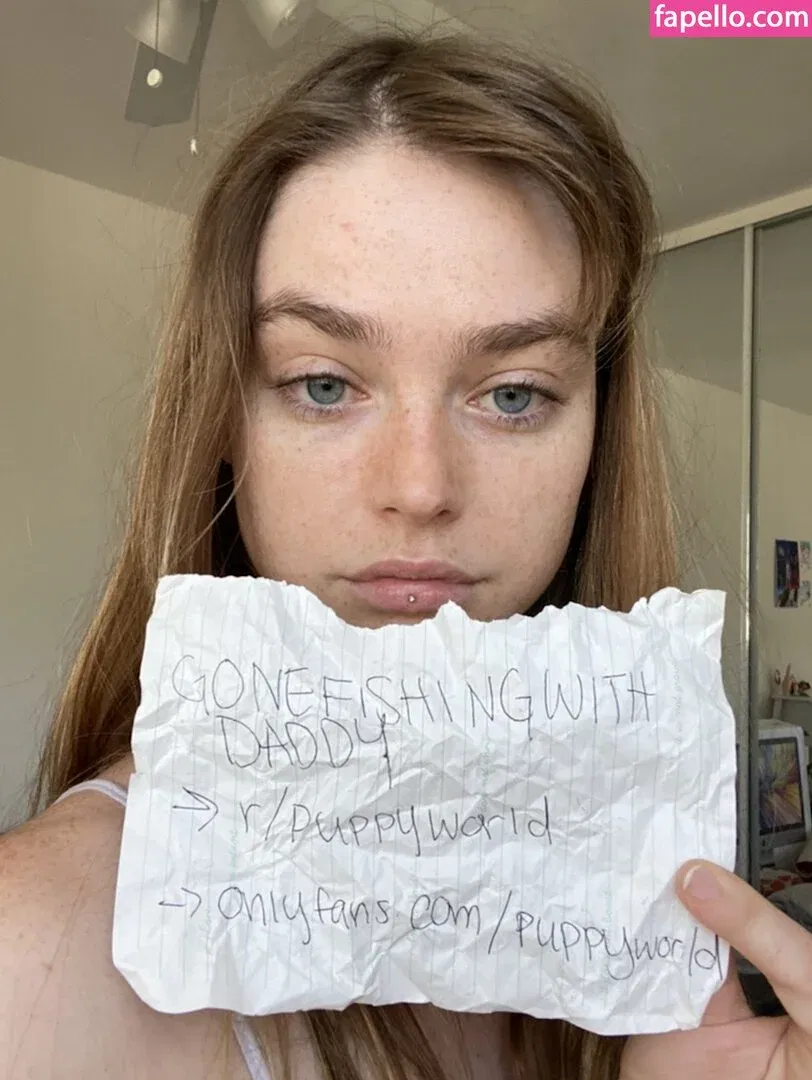 fapello.com
GONEFISHINGWITH
DADDY
-> r/puppyworld
-> onlyfans.com/puppyworld